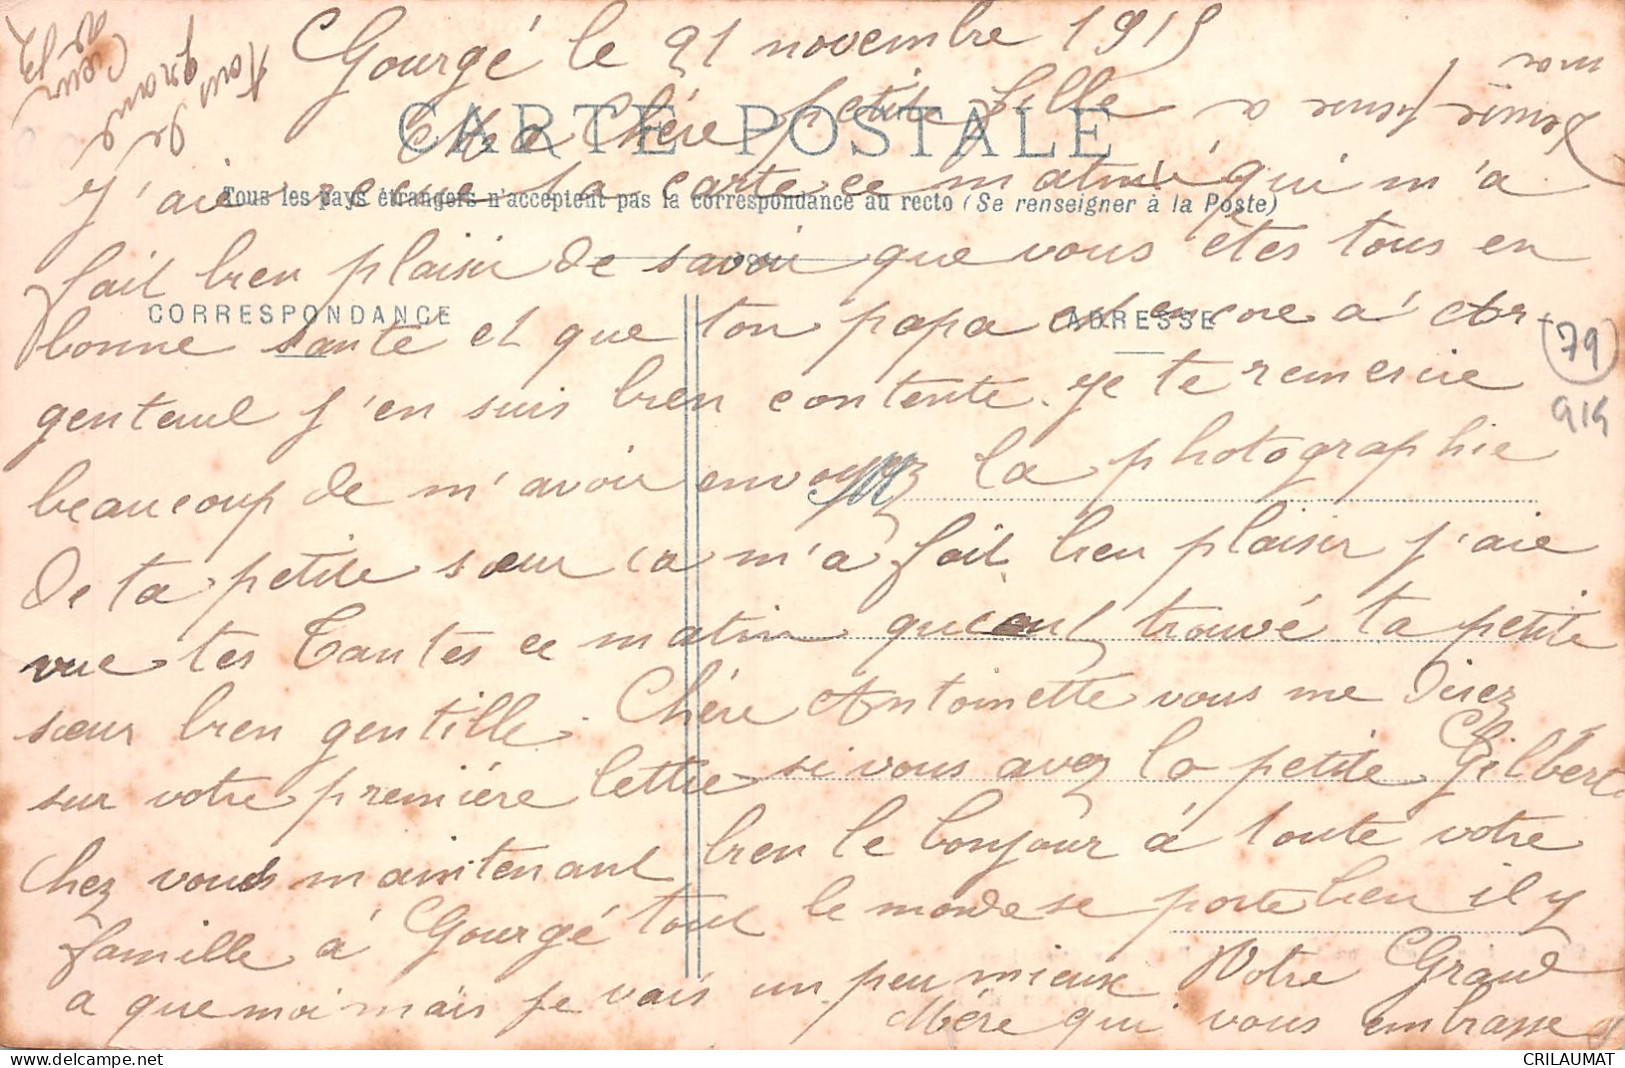 Gourgé le 21 novembre 1915
CARTE POSTALE
Ma Chère petite fille
Tous les pays étrangers n'acceptent pas la correspondance au recto (Se renseigner à la Poste)
J'aie recue ta carte ce matin qui m'a
fait bien plaisir de savoir que vous êtes tous en
CORRESPONDANCE
ADRESSE
bonne santé et que ton papa est encore a Ar-
genteuil j'en suis bien contente. Je te remercie
beaucoup de m'avoir envoyez la photographie
De ta petite sœur ca m'a fait bien plaisir j'aie
vue tes Tantes ce matin qui ont trouvé ta petite
sœur bien gentille. Chère Antoinette vous me direz
sur votre première lettre si vous avez la petite Gilberte
Chez vous maintenant bien le bonjour à toute votre
famille à Gourgé tout le monde se porte bien il y
a que moi mais je vais un peu mieux Votre Grand
Mère qui vous embrasse
de
tout
grand
Cœur
79
914